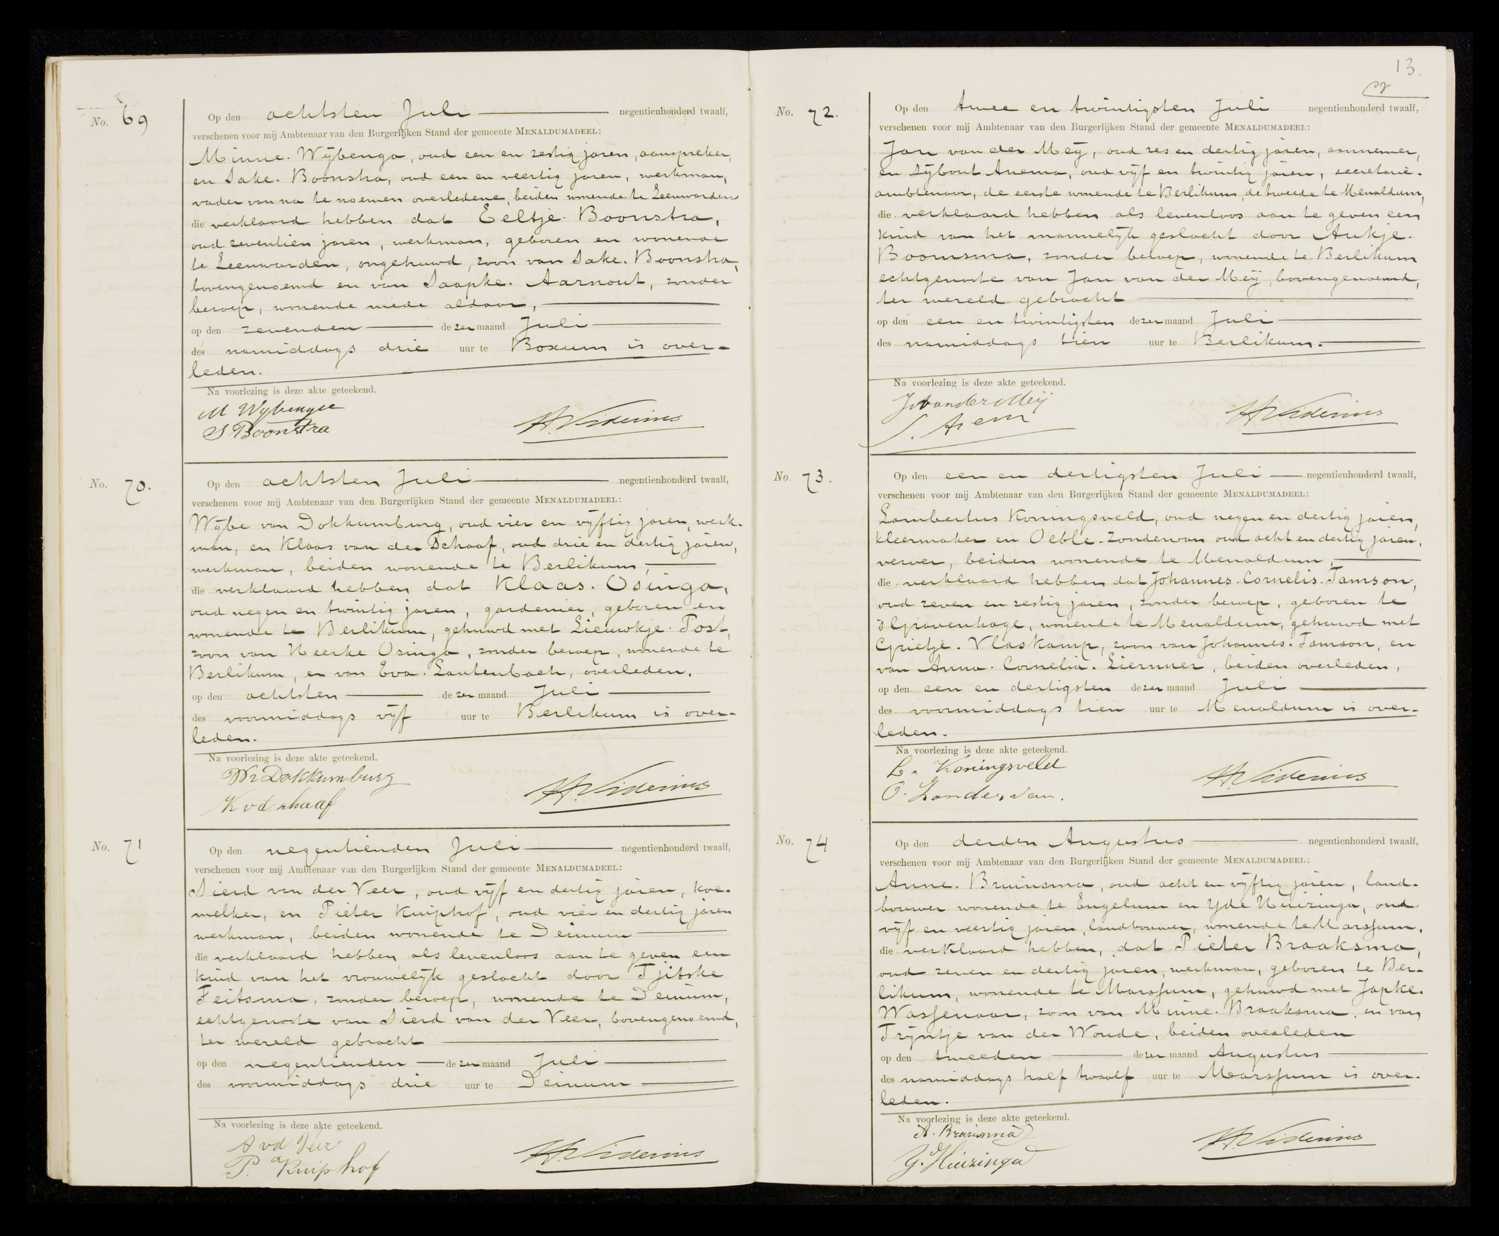 No. 69
Op den achtsten Juli negentienhonderd twaalf,
verschenen voor mij Ambtenaar van den Burgerlijken Stand der gemeente MENALDUMADEEL:
Minne Wijbenga, oud een en zestig jaren, aanspreker,
en Sake Boonstra, oud een en veertig jaren, werkman,
vader van na te noemen overledene, beiden wonende te Leeuwarden
die verklaard hebben dat Eeltje Boonstra,
oud zeventien jaren, werkman, geboren en wonende
te Leeuwarden, ongehuwd, zoon van Sake Boonstra,
bovengenoemd en van Jaapke Aarnout, zonder
beroep, wonende mede aldaar,
op den zevenden dezer maand Juli
des namiddags drie uur te Boxum is over-
leden.
Na voorlezing is deze akte geteekend.
M Wybenga
S Boonstra
No. 70.
Op den achtsten Juli negentienhonderd twaalf,
verschenen voor mij Ambtenaar van den Burgerlijken Stand der gemeente MENALDUMADEEL:
Wijbe van Dokkumburg, oud vier en vijftig jaren, werk-
man, en Klaas van der Schaaf, oud drie en dertig jaren,
werkman, beiden wonende te Berlikum,
die verklaard hebben dat Klaas Osinga,
oud negen en twintig jaren, gardenier, geboren en
wonende te Berlikum, gehuwd met Lieuwkje Post,
zoon van Heerke Osinga, zonder beroep, wonende te
Berlikum, en van Eva Lautenbach, overleden,
op den achtsten dezer maand Juli
des voormiddags vijf uur te Berlikum is over-
leden.
Na voorlezing is deze akte geteekend.
W v Dokkumburg
K v d Schaaf
No. 71
Op den negentienden Juli negentienhonderd twaalf,
verschenen voor mij Ambtenaar van den Burgerlijken Stand der gemeente MENALDUMADEEL:
Sierd van der Veer, oud vijf en dertig jaren, koe-
melker, en Pieter Kuiphof, oud vier en dertig jaren
werkman, beiden wonende te Deinum
die verklaard hebben als levenloos aan te geven een
kind van het vrouwelijk geslacht door Tjitske
Feitsma, zonder beroep, wonende te Deinum,
echtgenoote van Sierd van der Veer, bovengenoemd,
ter wereld gebracht
op den negentienden dezer maand Juli
des voormiddags drie uur te Deinum
Na voorlezing is deze akte geteekend.
S vd Veer
P. Kuiphof
13.
No. 72.
Op den twee en twintigsten Juli negentienhonderd twaalf,
verschenen voor mij Ambtenaar van den Burgerlijken Stand der gemeente MENALDUMADEEL:
Jan van der Meij, oud zes en dertig jaren, aannemer,
en Sijbout Anema, oud vijf en twintig jaren, secretarie-
ambtenaar, de eerste wonende te Berlikum, de tweede te Menaldum,
die verklaard hebben als levenloos aan te geven een
kind van het mannelijk geslacht door Aukje
Boomsma, zonder beroep, wonende te Berlikum
echtgenoote van Jan van der Meij, bovengenoemd,
ter wereld gebracht
op den een en twintigsten dezer maand Juli
des namiddags tien uur te Berlikum.
Na voorlezing is deze akte geteekend.
J van der Meij
S. Anema
No. 73.
Op den een en dertigsten Juli negentienhonderd twaalf,
verschenen voor mij Ambtenaar van den Burgerlijken Stand der gemeente MENALDUMADEEL:
Lambertus Koningsveld, oud negen en dertig jaren,
kleermaker en Oeble Zondervan oud acht en dertig jaren,
verver, beiden wonende te Menaldum,
die verklaard hebben dat Johannes Cornelis Tamson,
oud zeven en zestig jaren, zonder beroep, geboren te
's Gravenhage, wonende te Menaldum, gehuwd met
Grietje Vlaskamp, zoon van Johannes Tamson, en
van Anna Cornelia Liernner, beiden overleden,
op den een en dertigsten dezer maand Juli
des voormiddags tien uur te Menaldum is over-
leden.
Na voorlezing is deze akte geteekend.
L. Koningsveld
O. Zondervan.
No. 74
Op den derden Augustus negentienhonderd twaalf,
verschenen voor mij Ambtenaar van den Burgerlijken Stand der gemeente MENALDUMADEEL:
Anne Bruinsma, oud acht en vijftig jaren, land-
bouwer wonende te Engelum en Yde Huizinga, oud
vijf en veertig jaren, landbouwer, wonende te Marssum,
die verklaard hebben, dat Pieter Braaksma,
oud zeven en dertig jaren, werkman, geboren te Ber-
likum, wonende te Marssum, gehuwd met Japke
Wassenaar, zoon van Minne Braaksma, en van
Trijntje van der Woude, beiden overleden
op den tweeden dezer maand Augustus
des namiddags half twaalf uur te Marssum is over-
leden.
Na voorlezing is deze akte geteekend.
A. Bruinsma
Y. Huizinga